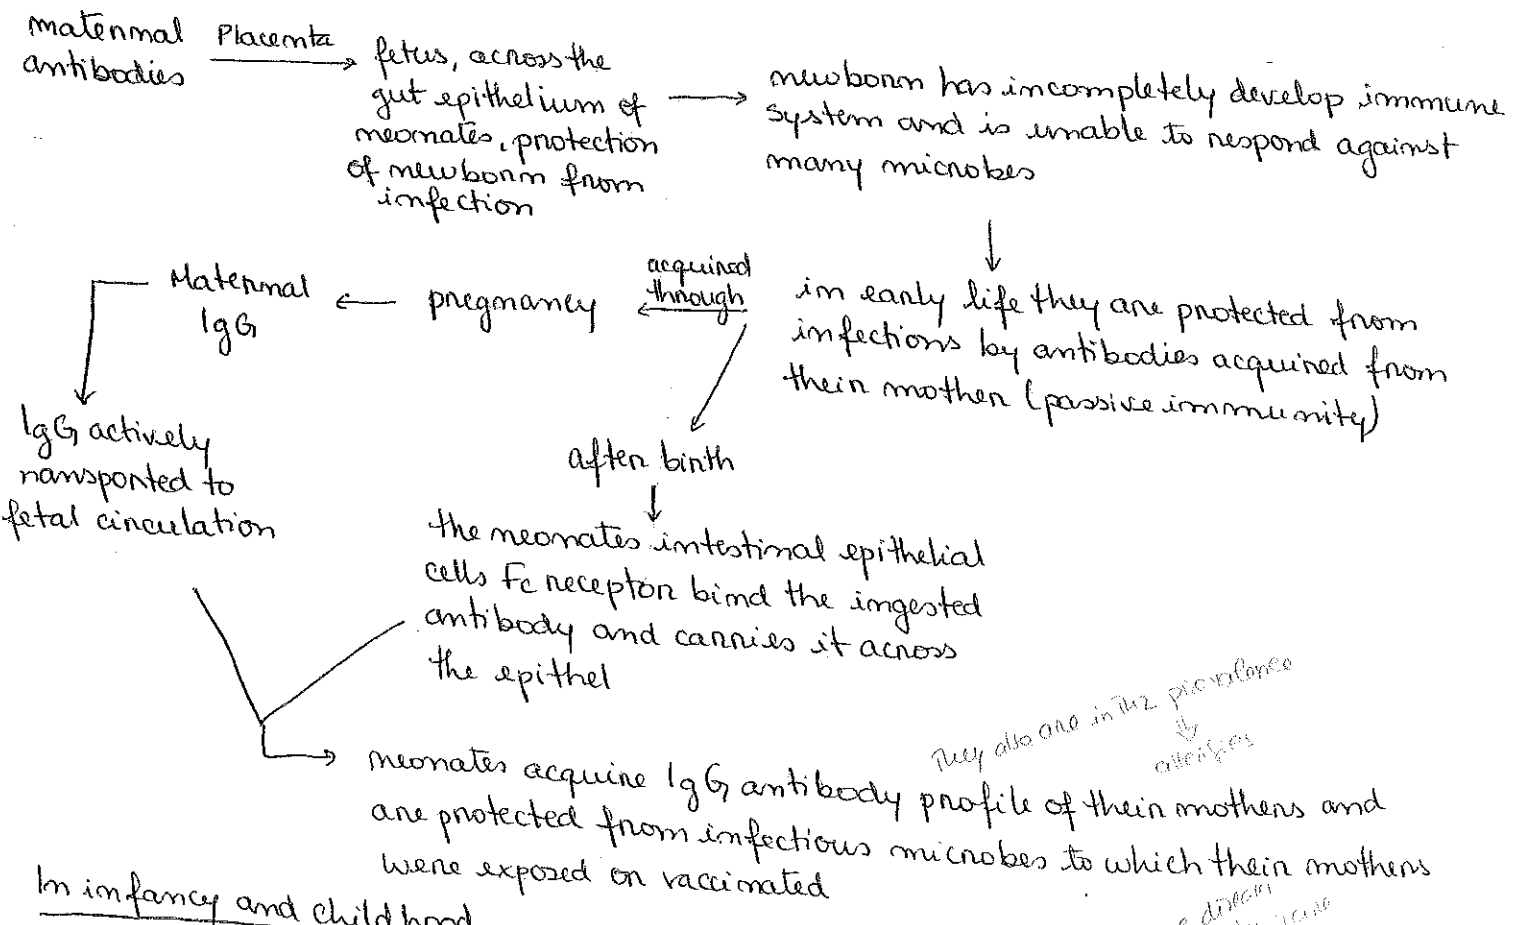 maternal Placenta
antibodies
fetus, across the
gut epithelium of
neonates, protection
of newborn from
infection
newborn has incompletely develop immune
system and is unable to respond against
many microbes
in early life they are protected from
infections by antibodies acquired from
their mother (passive immunity)
acquired
through
pregnancy
Maternal
IgG
IgG actively
ransported to
fetal circulation
after birth
the neonates intestinal epithelial
cells Fc receptor bind the ingested
antibody and carries it across
the epithel
They also are in Th2
neonates acquire IgG antibody profile of their mothers and
are protected from infectious microbes to which their mothers
were exposed or vaccinated
In infancy and childhood